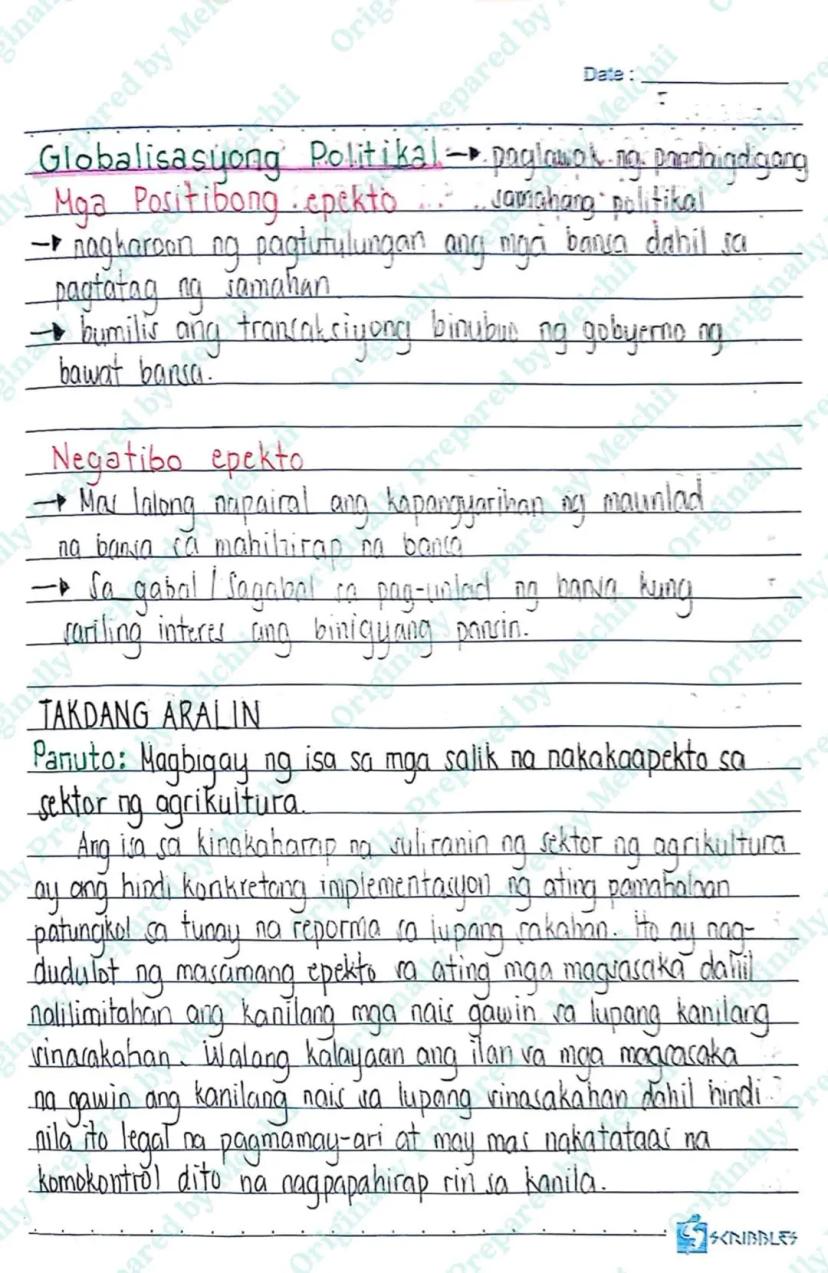 Date :
Globalisasyong Politikal → paglawak ng pandaigdigang
Mga Positibong epekto samahang politikal
→ nagkaroon ng pagtutulungan ang mga bansa dahil sa
pagtatag ng samahan
→ bumilis ang transaksiyong binubuo ng gobyerno ng
bawat bansa.
Negatibo epekto
→ Mas lalong napairal ang kapangyarihan ng maunlad
na bansa sa mahihirap na bansa
→ Sa gabal / Sagabal sa pag-unlad ng bansa kung
sariling interes ang binigyang pansin.
TAKDANG ARALIN
Panuto: Magbigay ng isa sa mga salik na nakakaapekto sa
sektor ng agrikultura.
Ang isa sa kinakaharap na suliranin ng sektor ng agrikultura
ay ang hindi konkretong implementasyon ng ating pamahalaan
patungkol sa tunay na reporma sa lupang sakahan. Ito ay nag-
dudulot ng masamang epekto sa ating mga magsasaka dahil
nalilimitahan ang kanilang mga nais gawin sa lupang kanilang
sinasakahan. Walang kalayaan ang ilan sa mga magsasaka
na gawin ang kanilang nais sa lupang sinasakahan dahil hindi
nila ito legal na pagmamay-ari at may mas nakatataas na
komokontrol dito na nagpapahirap rin sa kanila.
SCRIBBLES
Originally Prepared by Melchii